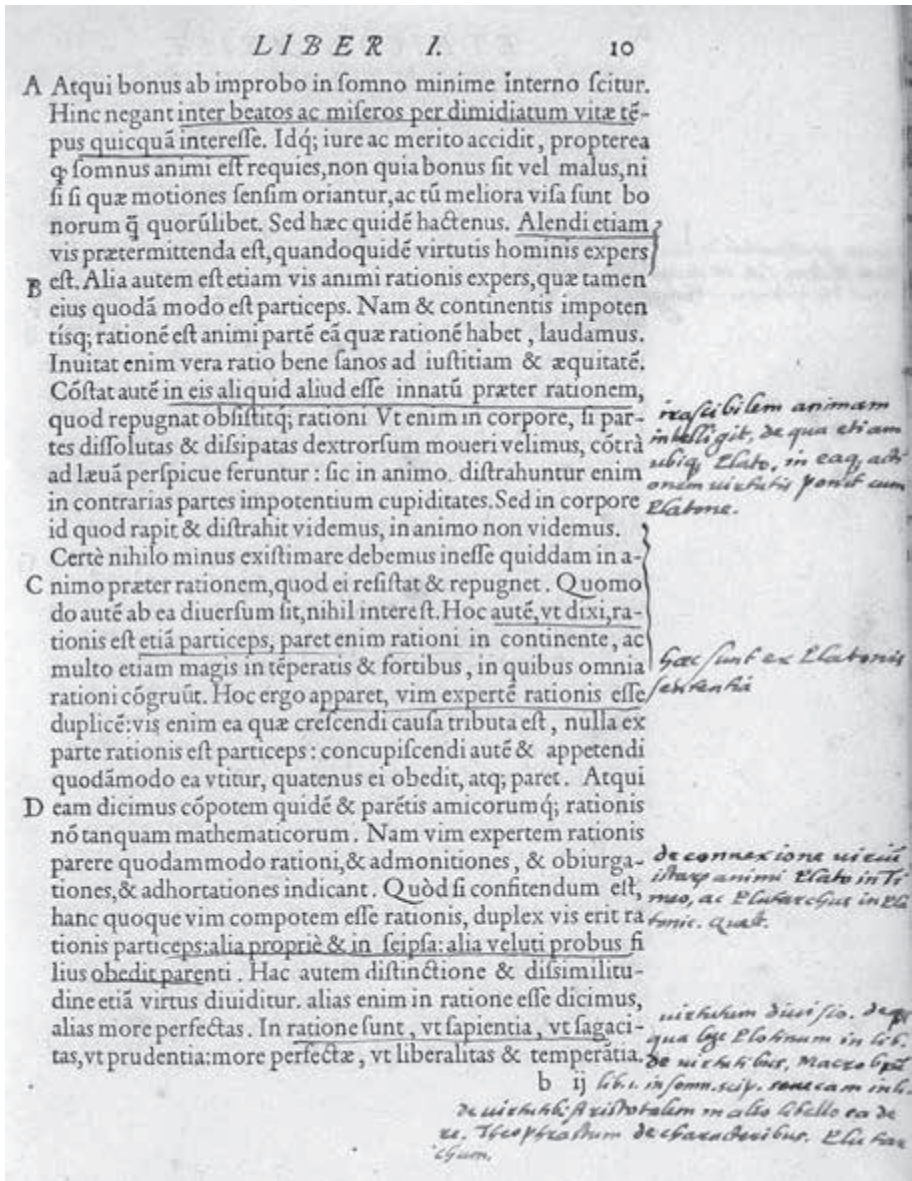 LIBER I. 10
A Atqui bonus ab improbo in ſomno minime interno ſcitur.
Hinc negant inter beatos ac miſeros per dimidiatum vitæ tẽ-
pus quicquã intereſſe. Idq́; iure ac merito accidit, propterea
ꝙ ſomnus animi eſt requies, non quia bonus ſit vel malus, ni
ſi ſi quæ motiones ſenſim oriantur, ac tũ meliora viſa ſunt bo
norum q̃ quorũlibet. Sed hæc quidẽ hactenus. Alendi etiam
vis prætermittenda eſt, quandoquidẽ virtutis hominis expers
B eſt. Alia autem eſt etiam vis animi rationis expers, quæ tamen
eius quodã modo eſt particeps. Nam & continentis impoten
tíſq; rationẽ eſt animi partẽ eã quæ rationẽ habet, laudamus.
Inuitat enim vera ratio bene ſanos ad iuſtitiam & æquitatẽ.
Cõſtat autẽ in eis aliquid aliud eſſe innatũ præter rationem,
quod repugnat obſiſtitq́; rationi Vt enim in corpore, ſi par-
tes diſſolutas & diſsipatas dextrorſum moueri velimus, cõtrà
ad læuã perſpicue feruntur: ſic in animo. diſtrahuntur enim
in contrarias partes impotentium cupiditates. Sed in corpore
id quod rapit & diſtrahit videmus, in animo non videmus.
Certè nihilo minus exiſtimare debemus ineſſe quiddam in a-
C nimo præter rationem, quod ei reſiſtat & repugnet. Quomo
do autẽ ab ea diuerſum ſit, nihil intereſt. Hoc autẽ, vt dixi, ra-
tionis eſt etiã particeps, paret enim rationi in continente, ac
multo etiam magis in tẽperatis & fortibus, in quibus omnia
rationi cõgruũt. Hoc ergo apparet, vim expertẽ rationis eſſe
duplicẽ: vis enim ea quæ creſcendi cauſa tributa eſt, nulla ex
parte rationis eſt particeps: concupiſcendi autẽ & appetendi
quodãmodo ea vtitur, quatenus ei obedit, atq; paret. Atqui
D eam dicimus cõpotem quidẽ & parẽtis amicorumq́; rationis
nõ tanquam mathematicorum. Nam vim expertem rationis
parere quodammodo rationi, & admonitiones, & obiurga-
tiones, & adhortationes indicant. Quòd ſi confitendum eſt,
hanc quoque vim compotem eſſe rationis, duplex vis erit ra
tionis particeps: alia propriè & in ſeipſa: alia veluti probus fi
lius obedit parenti. Hac autem diſtinctione & diſsimilitu-
dine etiã virtus diuiditur. alias enim in ratione eſſe dicimus,
alias more perfectas. In ratione ſunt, vt ſapientia, vt ſagaci-
tas, vt prudentia: more perfectæ, vt liberalitas & temperãtia.
b ij
iraſcibilem animam
intelligit, de qua etiam
ubiq; Plato, in eaq; acti
onem uirtutis ponit cum
Platone.
Hæc ſunt ex Platonis
ſententia
de connexione uiriũ
iſtarũ animi Plato in Ti
meo, ac Plutarchus in Pla
tonic. Quæſt.
uirtutum diuiſio. de
qua lege Plotinum in lib.
de uirtutibus, Macrobium
lib. 1. in ſomn. ſcip. ſenecam in li.
de uirtutib: Ariſtotelem in alio libello ea de
re. Theophraſtum de characteribus. Plutar
chum.